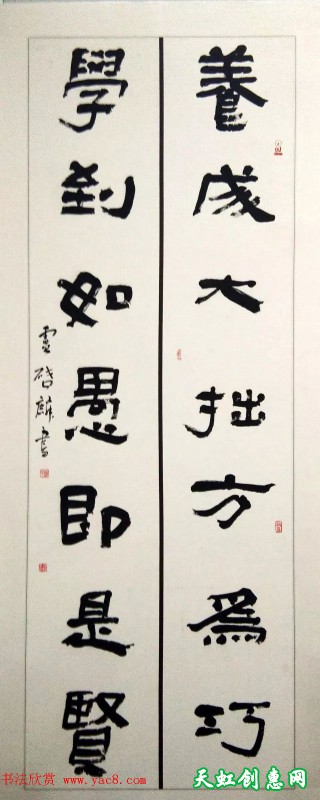 養成大拙方為巧
學到如愚即是賢
書法欣赏
www.yac8.com
天虹创惠网